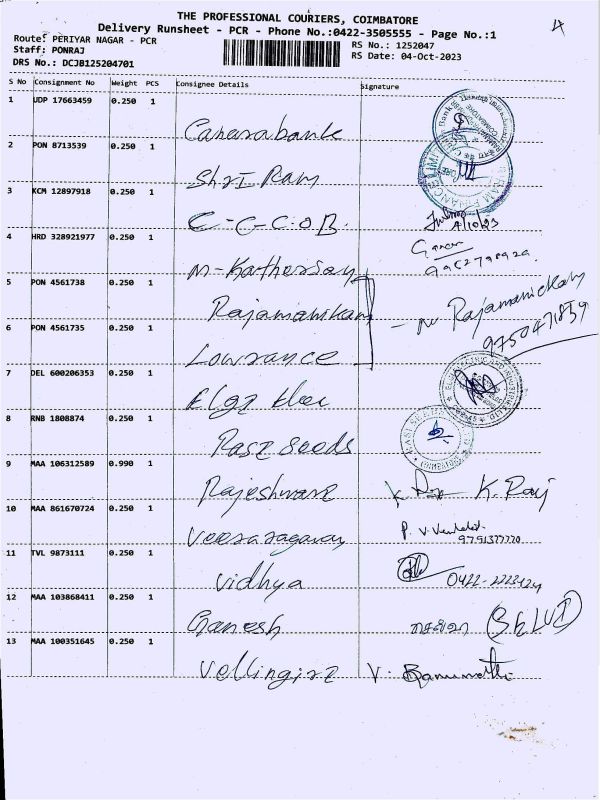 4
THE PROFESSIONAL COURIERS, COIMBATORE
Delivery Runsheet - PCR - Phone No.:0422-3505555 - Page No.:1
Route: PERIYAR NAGAR - PCR
RS No.: 1252047
Staff: PONRAJ
RS Date: 04-Oct-2023
DRS No.: DCJB125204701
S No Consignment No Weight PCS Consignee Details Signature
1 UDP 17663459 0.250 1 Canarabank
2 PON 8713539 0.250 1 Shri Ram
3 KCM 12897918 0.250 1 C-G-C-O B. 4/10/23
4 HRD 328921977 0.250 1
5 PON 4561738 0.250 1 Rajamanikam
6 PON 4561735 0.250 1 Lowrance
Rajamanickam
9750471859
7 DEL 600206353 0.250 1
8 RNB 1808874 0.250 1 Rasi seeds
9 MAA 106312589 0.990 1 Rajeshware K. Raj
10 MAA 861670724 0.250 1 Veeraragavan
9791377770
11 TVL 9873111 0.250 1 Vidhya
12 MAA 103868411 0.250 1 Ganesh
13 MAA 100351645 0.250 1 Vellingiri V. Banumathi